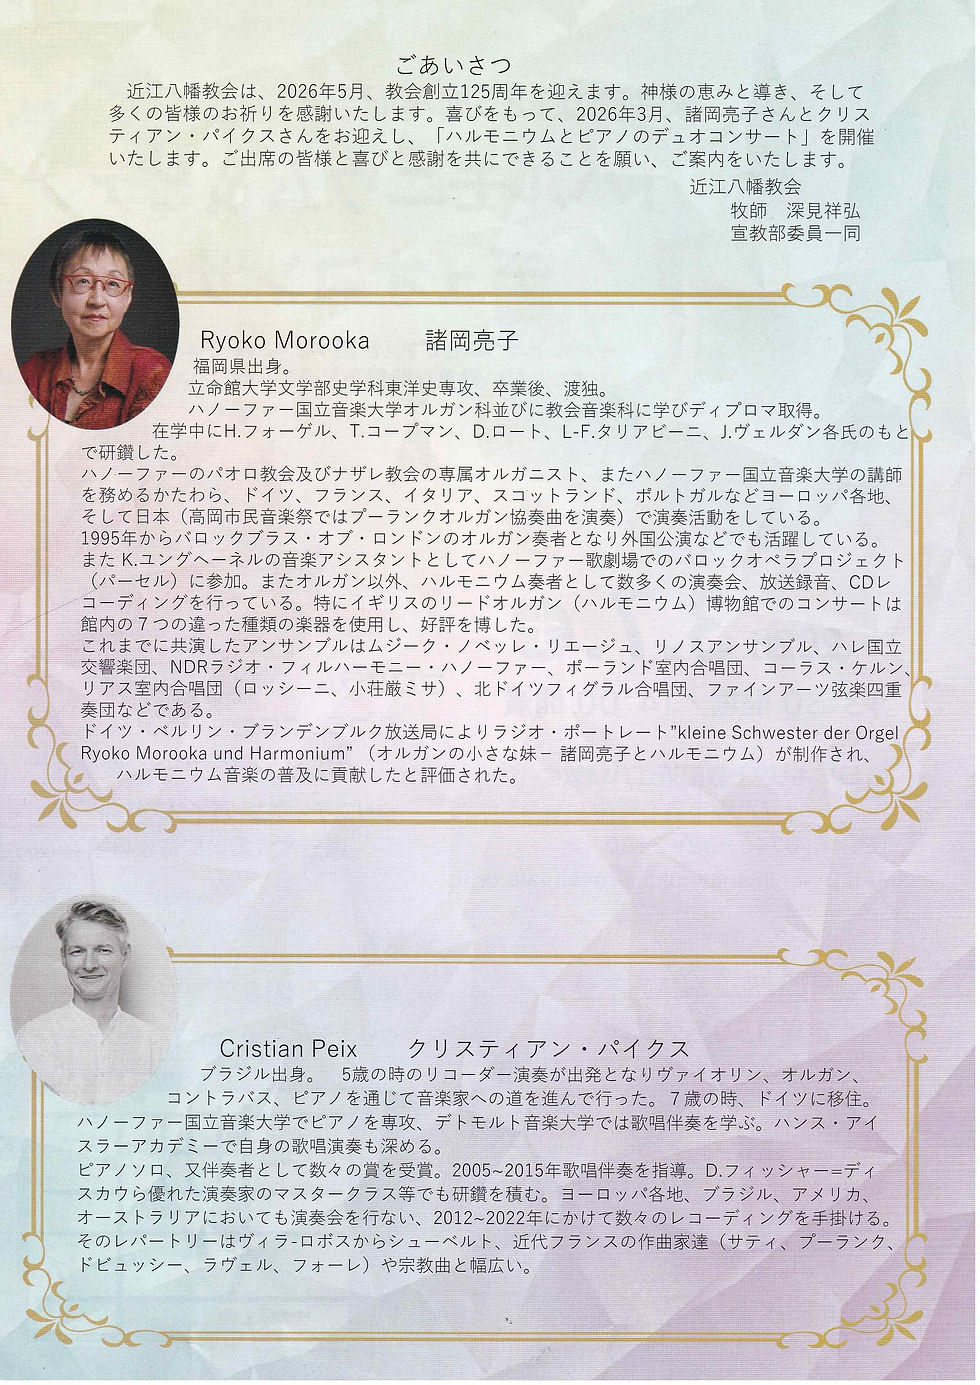 ごあいさつ
近江八幡教会は、2026年5月、教会創立125周年を迎えます。神様の恵みと導き、そして
多くの皆様のお祈りを感謝いたします。喜びをもって、2026年3月、諸岡亮子さんとクリス
ティアン・パイクスさんをお迎えし、「ハルモニウムとピアノのデュオコンサート」を開催
いたします。ご出席の皆様と喜びと感謝を共にできることを願い、ご案内をいたします。
近江八幡教会
牧師　深見祥弘
宣教部委員一同
Ryoko Morooka　　諸岡亮子
福岡県出身。
立命館大学文学部史学科東洋史専攻、卒業後、渡独。
ハノーファー国立音楽大学オルガン科並びに教会音楽科に学びディプロマ取得。
在学中にH.フォーゲル、T.コープマン、D.ロート、L-F.タリアビーニ、J.ヴェルダン各氏のもと
で研鑽した。
ハノーファーのパオロ教会及びナザレ教会の専属オルガニスト、またハノーファー国立音楽大学の講師
を務めるかたわら、ドイツ、フランス、イタリア、スコットランド、ポルトガルなどヨーロッパ各地、
そして日本（高岡市民音楽祭ではプーランクオルガン協奏曲を演奏）で演奏活動をしている。
1995年からバロックブラス・オブ・ロンドンのオルガン奏者となり外国公演などでも活躍している。
また K.ユングヘーネルの音楽アシスタントとしてハノーファー歌劇場でのバロックオペラプロジェクト
（パーセル）に参加。またオルガン以外、ハルモニウム奏者として数多くの演奏会、放送録音、CDレ
コーディングを行っている。特にイギリスのリードオルガン（ハルモニウム）博物館でのコンサートは
館内の７つの違った種類の楽器を使用し、好評を博した。
これまでに共演したアンサンブルはムジーク・ノベッレ・リエージュ、リノスアンサンブル、ハレ国立
交響楽団、NDRラジオ・フィルハーモニー・ハノーファー、ポーランド室内合唱団、コーラス・ケルン、
リアス室内合唱団（ロッシーニ、小荘厳ミサ）、北ドイツフィグラル合唱団、ファインアーツ弦楽四重
奏団などである。
ドイツ・ベルリン・ブランデンブルク放送局によりラジオ・ポートレート”kleine Schwester der Orgel
Ryoko Morooka und Harmonium” （オルガンの小さな妹－ 諸岡亮子とハルモニウム）が制作され、
ハルモニウム音楽の普及に貢献したと評価された。
Cristian Peix　　クリスティアン・パイクス
ブラジル出身。　5歳の時のリコーダー演奏が出発となりヴァイオリン、オルガン、
コントラバス、ピアノを通じて音楽家への道を進んで行った。７歳の時、ドイツに移住。
ハノーファー国立音楽大学でピアノを専攻、デトモルト音楽大学では歌唱伴奏を学ぶ。ハンス・アイ
スラーアカデミーで自身の歌唱演奏も深める。
ピアノソロ、又伴奏者として数々の賞を受賞。2005~2015年歌唱伴奏を指導。D.フィッシャー=ディ
スカウら優れた演奏家のマスタークラス等でも研鑽を積む。ヨーロッパ各地、ブラジル、アメリカ、
オーストラリアにおいても演奏会を行ない、2012~2022年にかけて数々のレコーディングを手掛ける。
そのレパートリーはヴィラ-ロボスからシューベルト、近代フランスの作曲家達（サティ、プーランク、
ドビュッシー、ラヴェル、フォーレ）や宗教曲と幅広い。